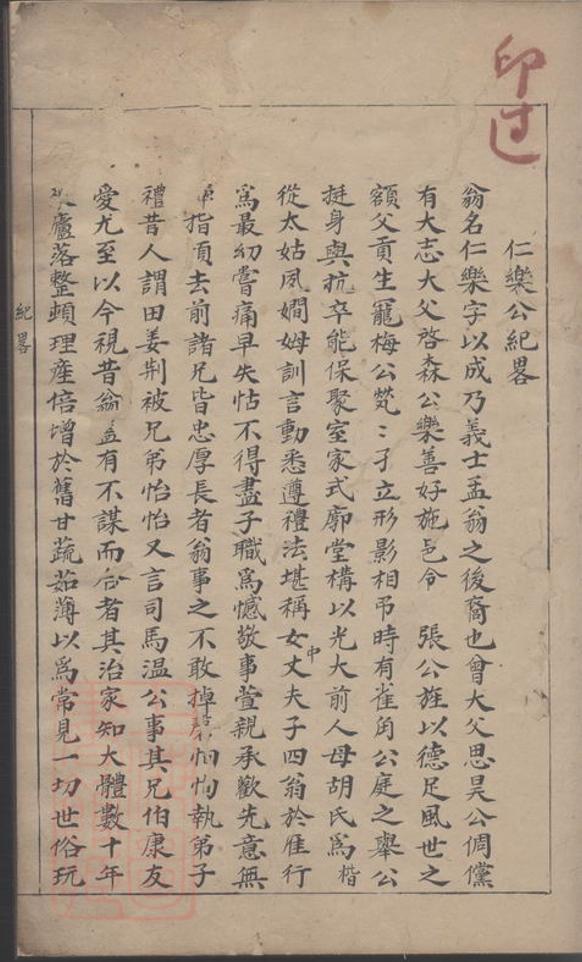 印过
仁樂公紀畧
翁名仁樂字以成乃義士孟翁之後裔也曾大父思昊公倜儻
有大志大父啓森公樂善好施邑令　張公旌以德足風世之
額父貢生寵梅公煢〻孑立形影相吊時有雀角公庭之舉公
挺身與抗卒能保聚室家式廓堂構以光大前人母胡氏爲楷
從太姑夙嫺姆訓言動悉遵禮法堪稱女中丈夫子四翁於雁行
爲最幼嘗痛早失怙不得盡子職爲憾敬事萱親承歡先意無
指頃去前諸兄皆忠厚長者翁事之不敢掉磬恂恂執弟子
禮昔人謂田姜荆被兄弟怡怡又言司馬温公事其兄伯康友
愛尤至以今視昔翁盖有不謀而合者其治家知大體數十年
廬落整頓理産倍增於舊甘蔬茹薄以爲常見一切世俗玩
紀畧